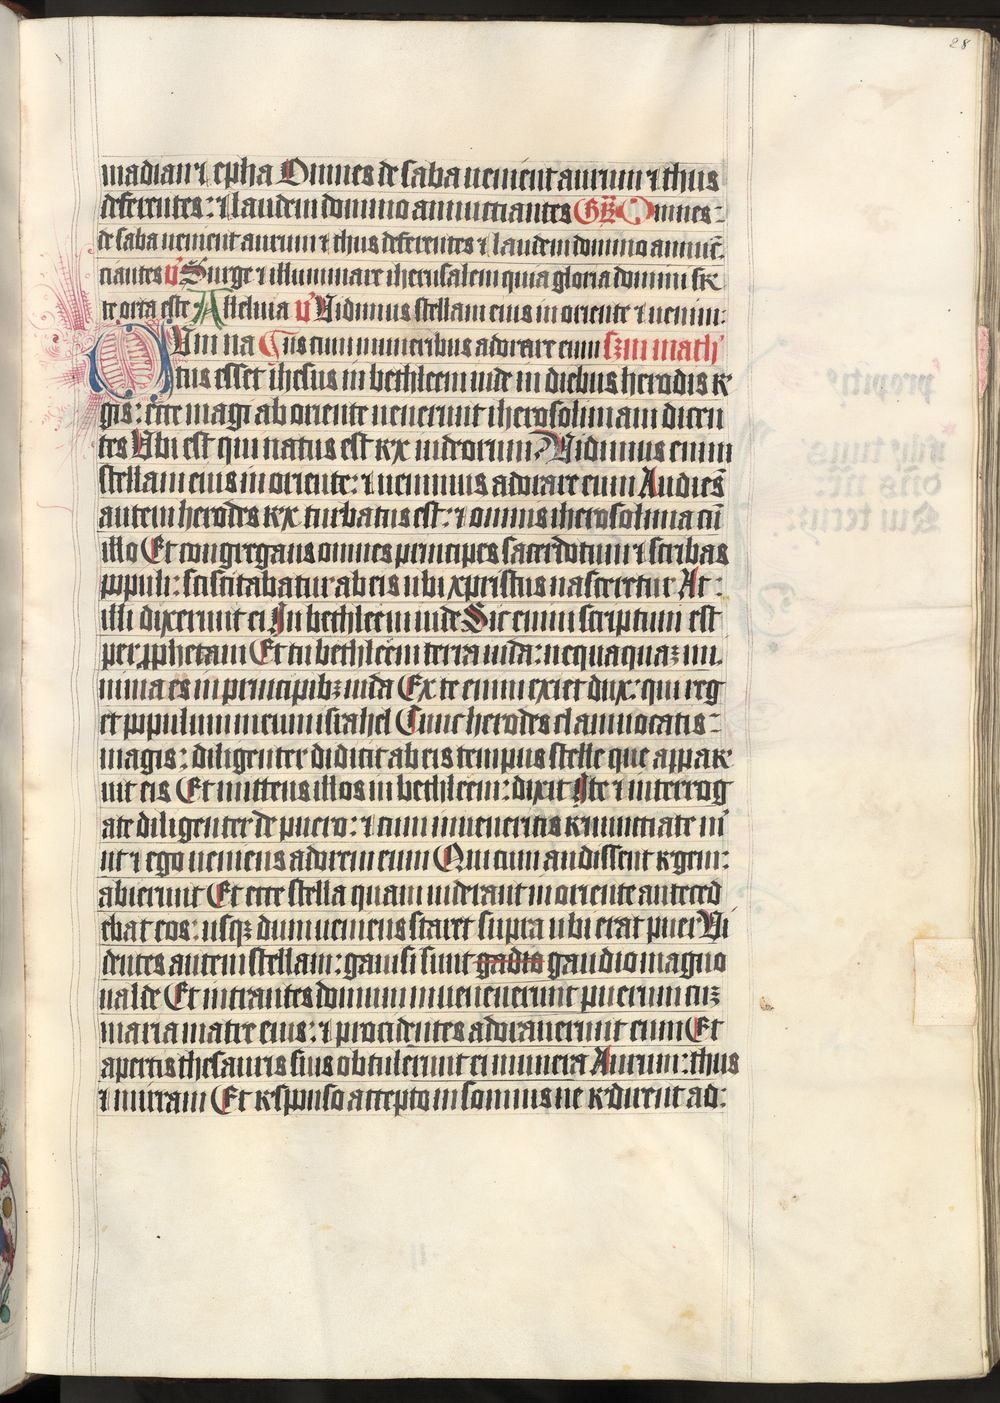 28
madian ⁊ epha Omnes de saba uenient aurum ⁊ thus
deferentes: ⁊ laudem domino annuctiantes Gr̄ Omnes:
de saba uenient aurum ⁊ thus deferentes ⁊ laudem domino annuc̄
ciantes v̓ Surge ⁊ illuminare iherusalem quia gloria domini sr
te orta est Alleluia v̓ Uidimus stellam eius in oriente ⁊ uenim:
Cum na us cum muneribus adorare eum scd̄m math̓
tus esset ihesus in bethleem iude in diebus herodis re
gis: ecce magi ab oriente uenerunt iherosolimam dicen
tes Ubi est qui natus est rex iudeorum? Uidimus enim
stellam eius in oriente: ⁊ uenimus adorare eum Audiēs
autem herodes rex turbatus est: ⁊ omnis iherosolima cū
illo Et congregans omnes principes sacerdotum ⁊ scribas
ppuli: sciscitabatur ab eis ubi xpristus nasceretur At:
illi dixerunt ei In bethleem iude Sic enim scriptum est
per pphetam Et tu bethleem terra iuda: nequaquaꝫ mi
nima es in principibꝫ iuda Ex te enim exiet dux: qui reg
et ppulum meum israhel Tunc herodes clam uocatis:
magis: diligenter didicit ab eis tempus stelle que appar
uit eis Et mittens illos in bethleem: dixit Ite ⁊ interrog
ate diligenter de puero: ⁊ cum inueneritis renunciate m̓
ut ⁊ ego ueniens adorem eum Qui cum audissent regem:
abierunt Et ecce stella quam uiderant in oriente anteced
ebat eos: usqꝫ dum ueniens staret supra ubi erat puer Ui
dentes autem stellam: gauisi sunt gadio gaudio magno
ualde Et intrantes domum inuenerunt puerum cuꝫ
maria matre eius: ⁊ procidentes adorauerunt eum Et
apertis thesauris suis obtulerunt ei munera Aurum: thus
⁊ mirram Et responso accepto in somnis ne redirent ad: